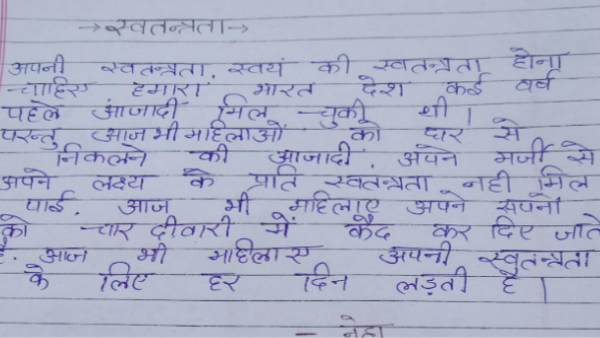 → स्वतन्त्रता →
अपनी स्वतन्त्रता. स्वयं की स्वतन्त्रता होना
चाहिए हमारा भारत देश कई वर्ष
पहले आंजादी मिल चुकी थी।
परन्तु आज भी महिलाओं को घर से
निकलने की आजादी. अपने मर्जी से
अपने लक्ष्य के प्रति स्वतन्त्रता नही मिल
पाई. आज भी महिलाए अपने सपनो
को चार दीवारी में कैद कर दिए जाते
है. आज भी महिलाए अपनी स्वतन्त्रता
के लिए हर दिन लड़ती है।
- नेहा